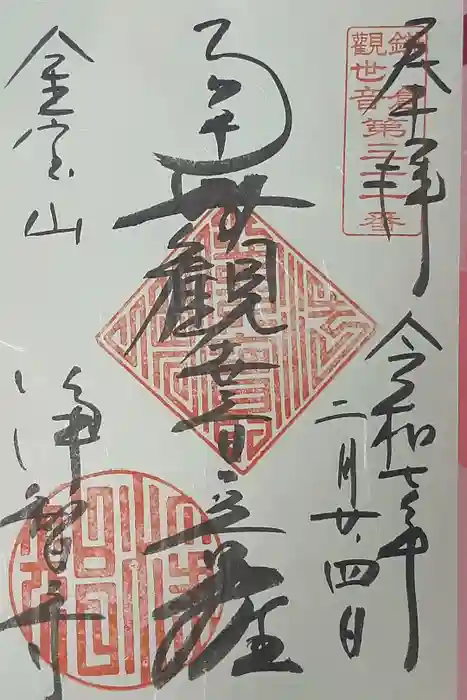 奉拝
鎌倉
觀世音第三十一番
令和七年
二月廿四日
南無觀世音菩薩
金宝山
浄智寺